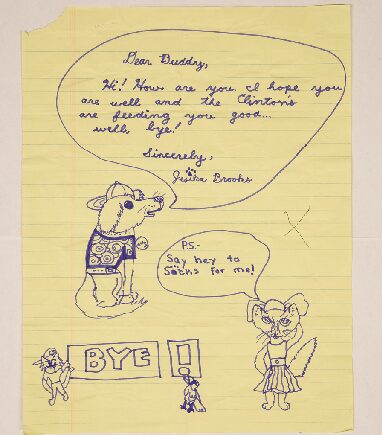 Dear Buddy,
Hi! How are you. I hope you
are well and the Clinton's
are feeding you good...
well, bye!
Sincerely,
Jesika Brooks
P.S.-
Say hey to
Socks for me!
BYE!